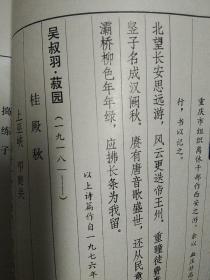 重庆市组织离休干部作西安之游，余以
行，书以记之。
北望长安思远游，风云更迭帝王州。重瞳徒费
竖子名成汉阙秋。赓有唐音歌盛世，还从民
灞桥柳色年年绿，应拂长条为我留。
以上诗篇作自一九七六年
吴叔羽·菽园
（一九一八—
桂殿秋
捣练子